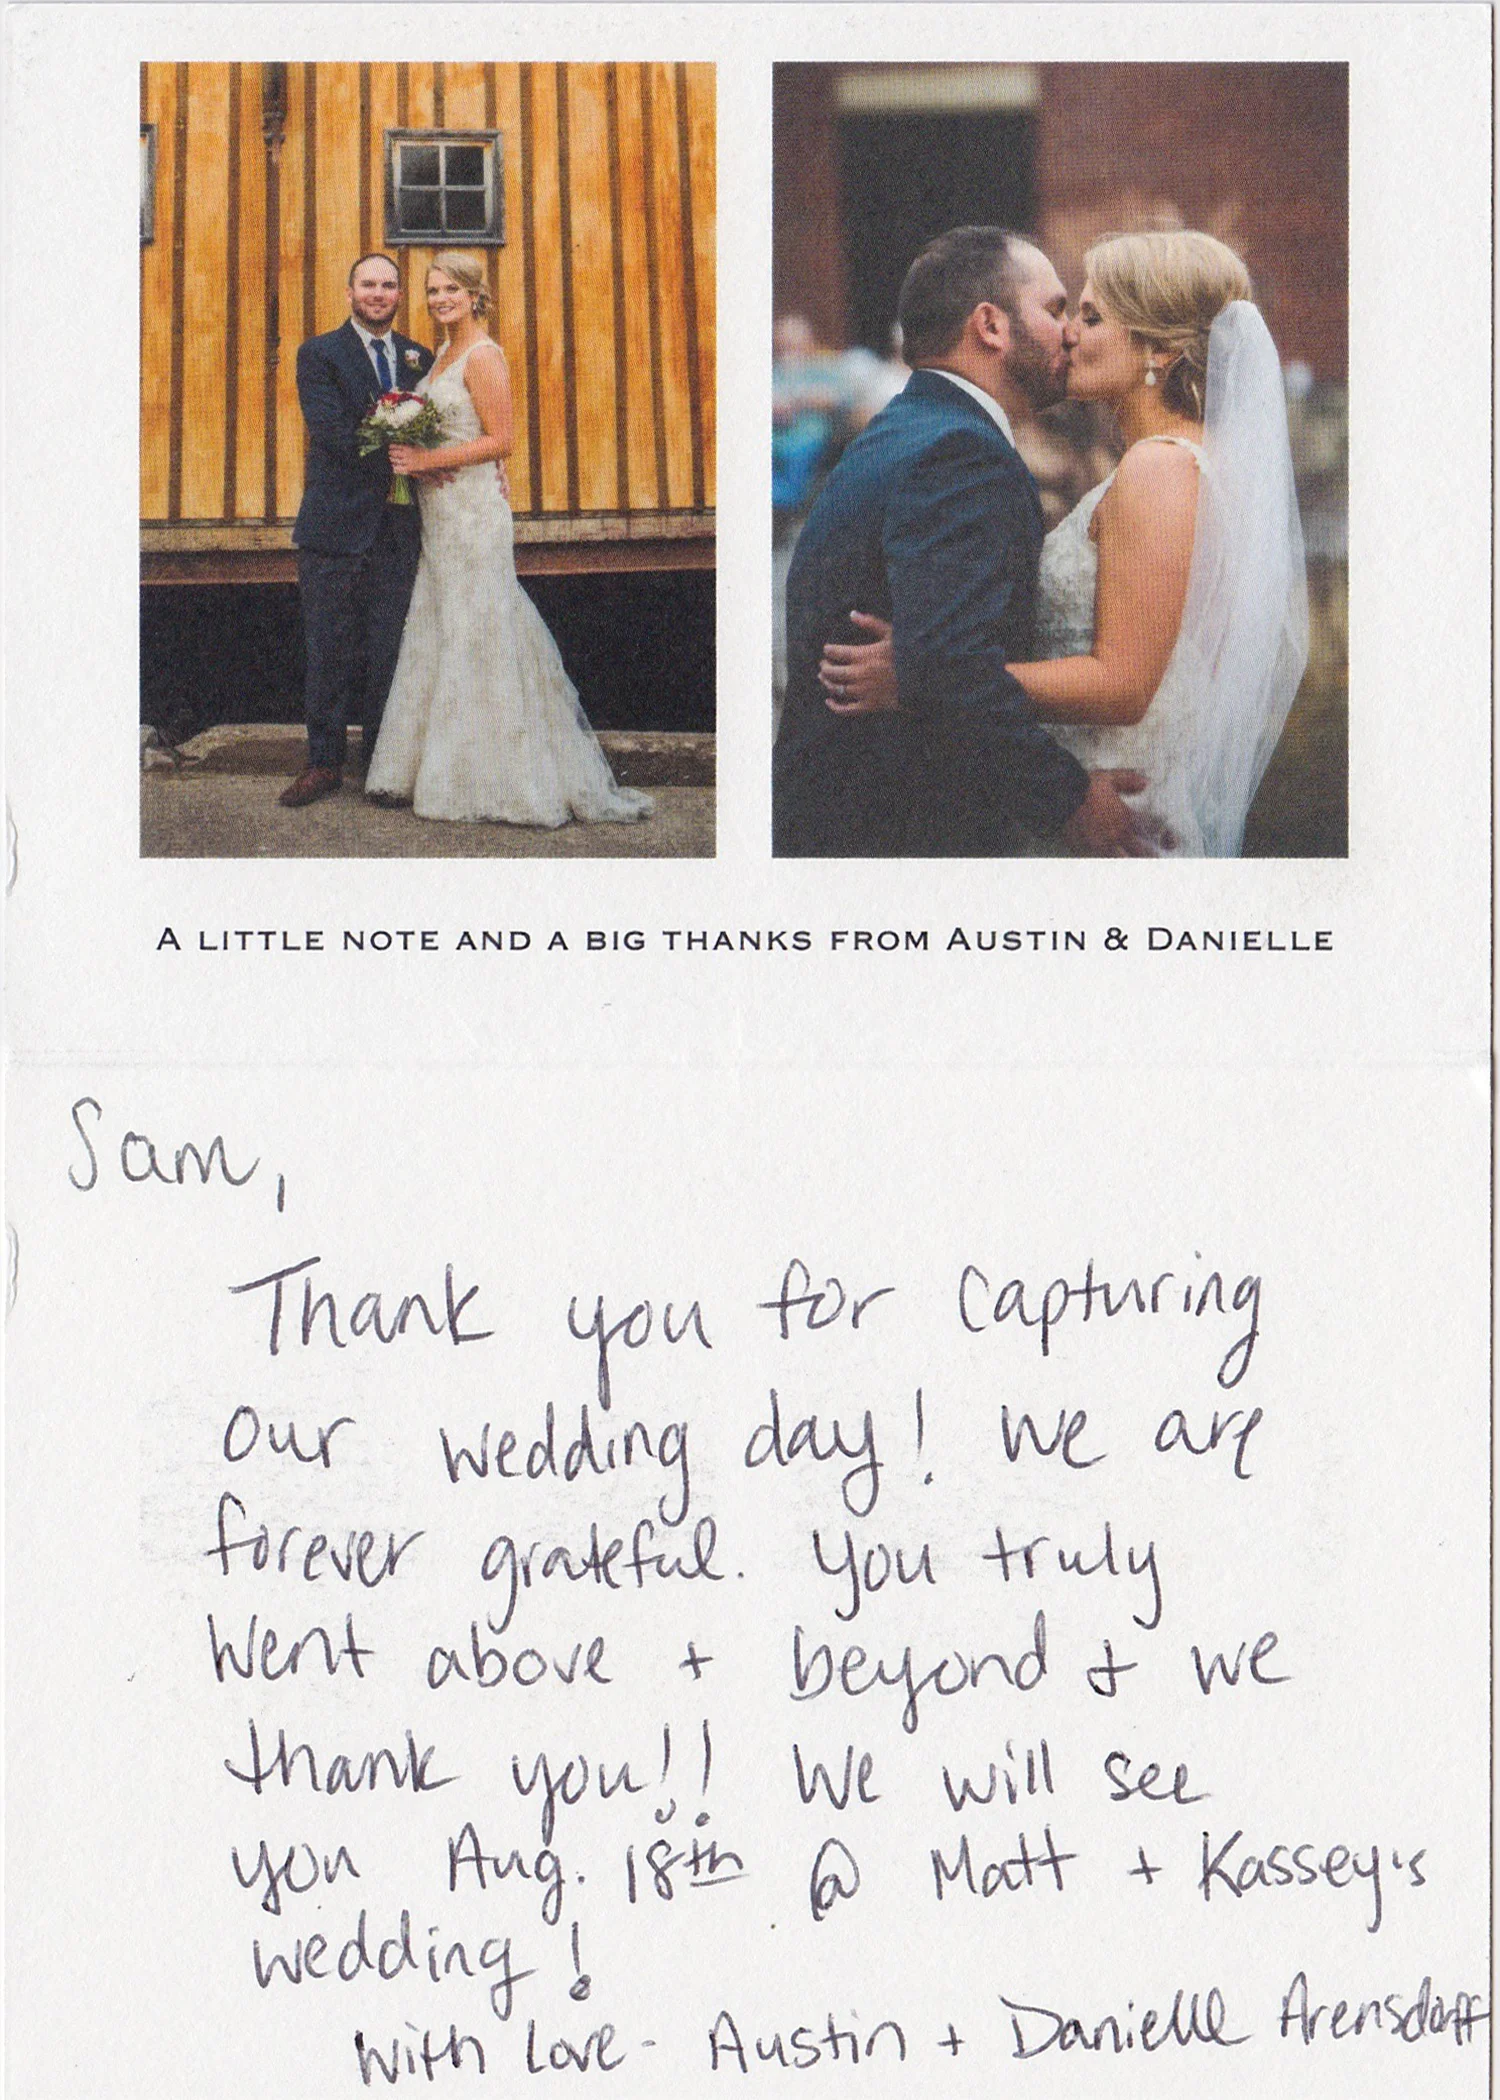 A little note and a big thanks from Austin & Danielle
Sam,
Thank you for capturing
our wedding day! We are
forever grateful. You truly
went above + beyond & we
thank you!! We will see
you Aug. 18th @ Matt + Kassey's
wedding!
With Love - Austin + Danielle Arensdorff